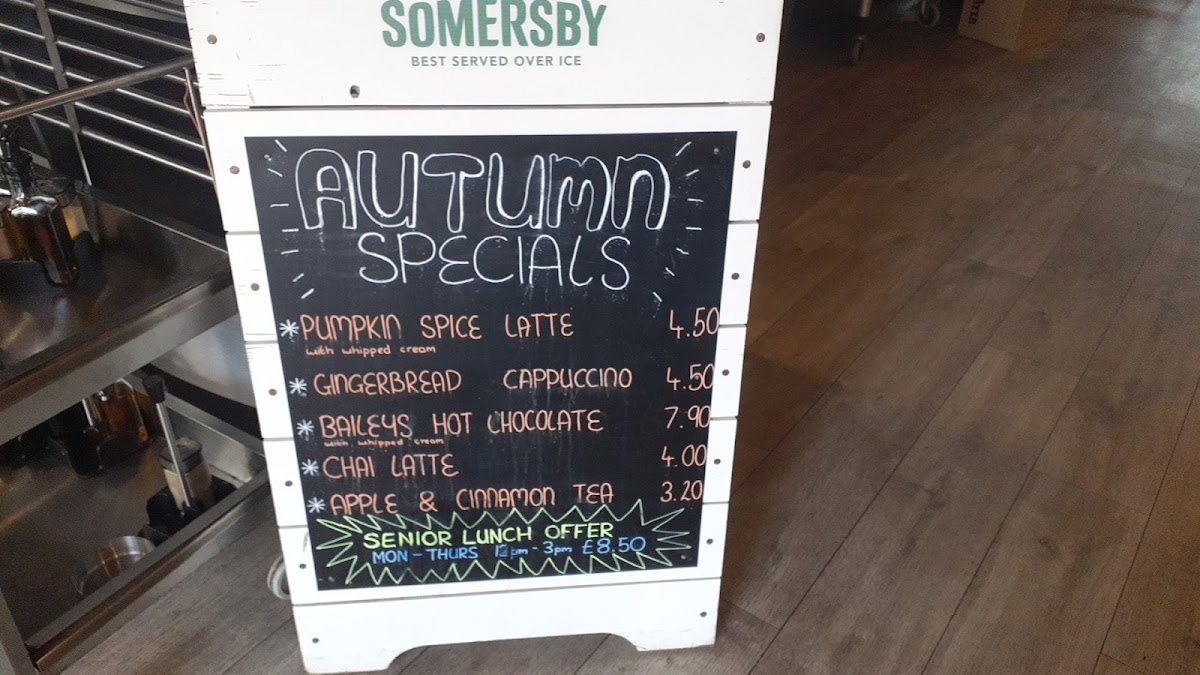 SOMERSBY
BEST SERVED OVER ICE
AUTUMN
SPECIALS
* PUMPKIN SPICE LATTE 4.50
with whipped cream
* GINGERBREAD CAPPUCCINO 4.50
* BAILEYS HOT CHOCOLATE 7.90
with whipped cream
* CHAI LATTE 4.00
* APPLE & CINNAMON TEA 3.20
SENIOR LUNCH OFFER
MON - THURS 12pm - 3pm £8.50